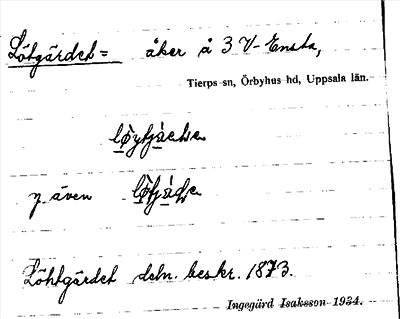 Lötgärdet = åker å 3 V-Ensta,
Tierps sn, Örbyhus hd, Uppsala län.
y även
Löhtgärdet deln. beskr. 1873.
Ingegärd Isaksson 1934.